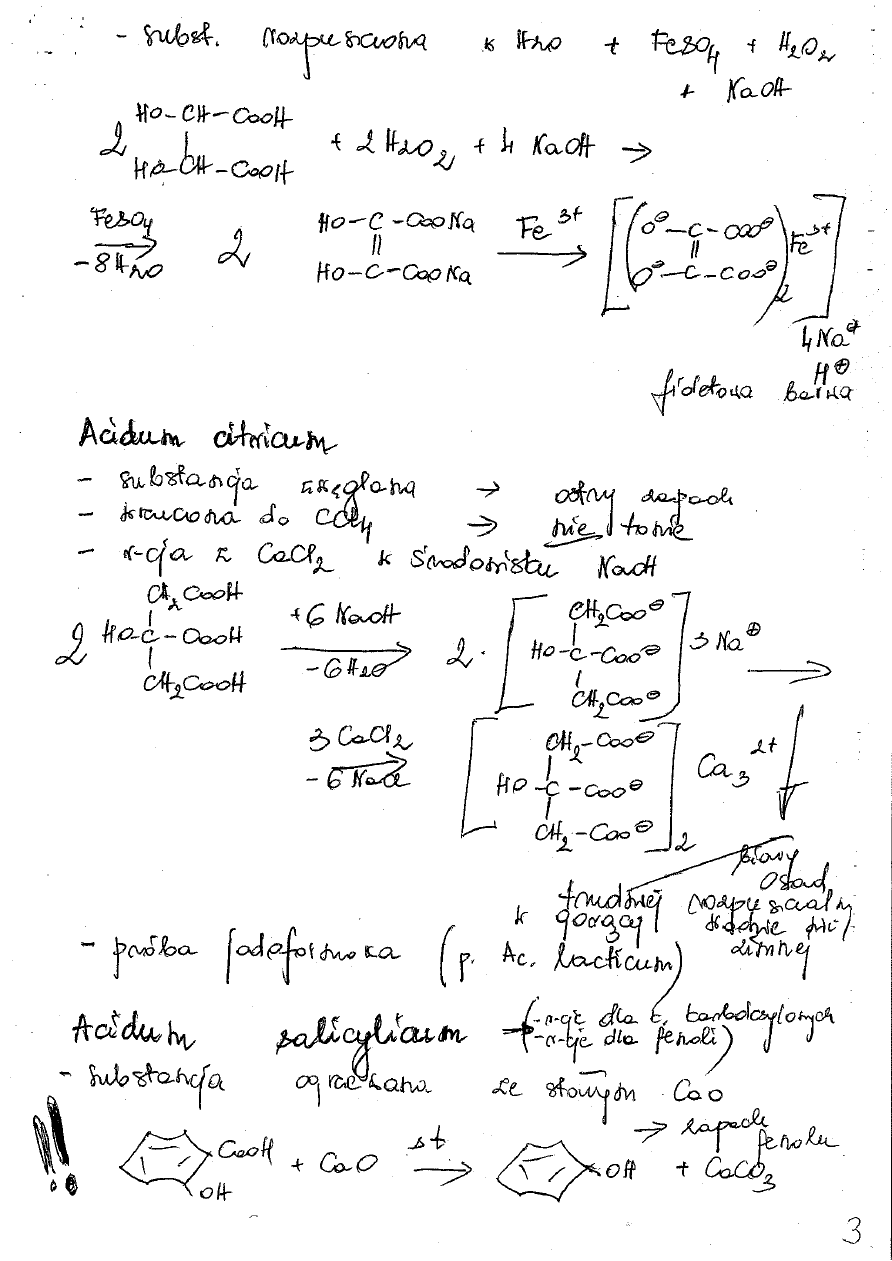 - subst. rozpuszczona w H2O + FeSO4 + H2O2
+ NaOH
2 HO-CH-COOH
HO-CH-COOH + 2 H2O2 + 4 NaOH →
FeSO4
-8 H2O
2 HO-C-COONa
HO-C-COONa
Fe3+
[(O⊖-C-COO⊖
O⊖-C-COO⊖)2 Fe3+]
4Na⊕
H⊕
fioletowa barwa
Acidum citricum
- substancja zwęglana → ostry zapach
- wrzucona do CCl4 → nie tonie
- r-cja z CaCl2 w środowisku NaOH
2 CH2COOH
HO-C-COOH
CH2COOH
+6 NaOH
-6 H2O
2 · [CH2COO⊖
HO-C-COO⊖
CH2COO⊖] 3 Na⊕ →
3 CaCl2
-6 NaCl
[CH2-COO⊖
HO-C-COO⊖
CH2-COO⊖]2 Ca3 2+ ↓
biały
osad
trudniej rozpuszczalny
w gorącej wodzie niż
zimnej
- próba jodoformowa (p. Ac. lacticum)
Acidum salicylicum → (-r-cje dla k. karboksylowych
-r-cje dla fenoli)
- substancja ogrzewana ze stałym CaO
→ zapach
fenolu
!! COOH
OH + CaO Δt → OH + CaCO3
3